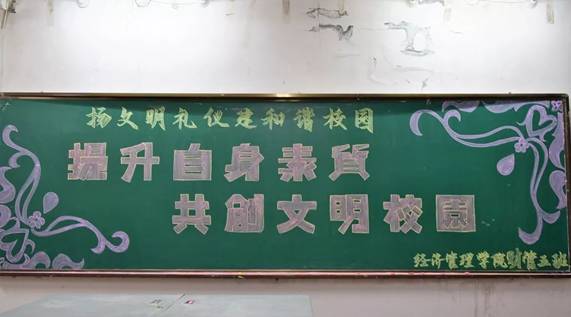 扬文明礼仪建和谐校园
提升自身素質
共創文明校園
经济管理学院财管五班